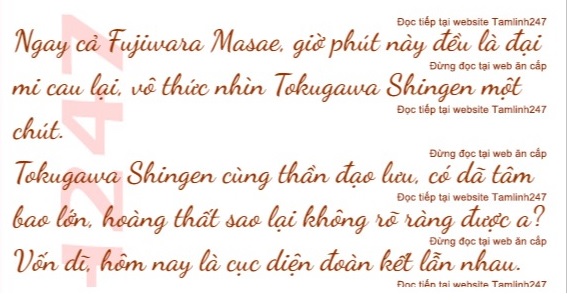 Đọc tiếp tại website Tamlinh247
Ngay cả Fujiwara Masae, giờ phút này đều là đại
Đừng đọc tại web ăn cắp
mi cau lại, vô thức nhìn Tokugawa Shingen một
Đọc tiếp tại website Tamlinh247
chút.
Đừng đọc tại web ăn cắp
Tokugawa Shingen cùng thần đạo lưu, có dã tâm
Đọc tiếp tại website Tamlinh247
bao lớn, hoàng thất sao lại không rõ ràng được a?
Đừng đọc tại web ăn cắp
Vốn dĩ, hôm nay là cục diện đoàn kết lẫn nhau.
Đọc tiếp tại website Tamlinh247
1247